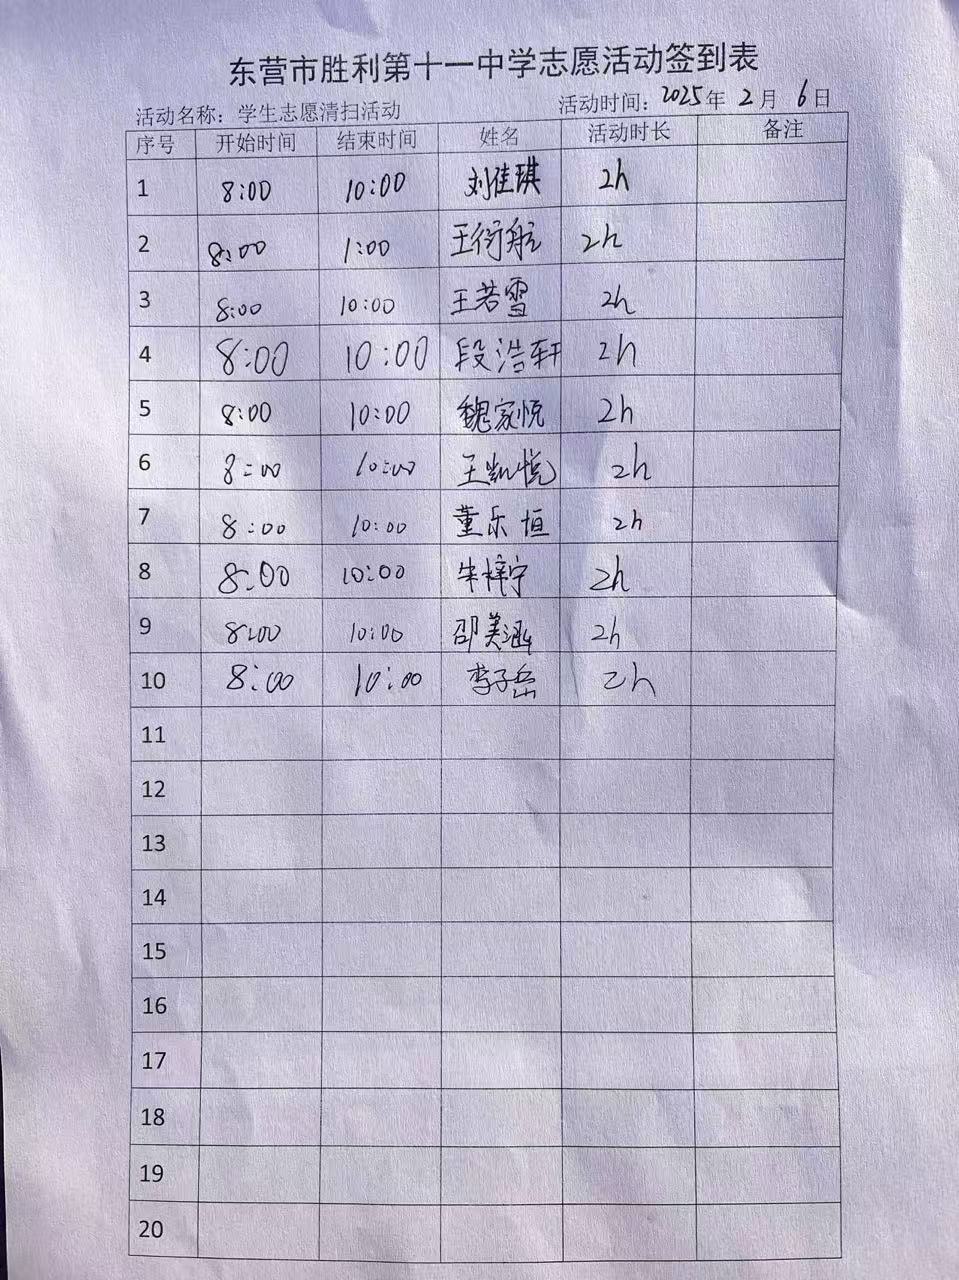 东营市胜利第十一中学志愿活动签到表
活动名称：学生志愿清扫活动 活动时间：2025年 2月 6日
序号 开始时间 结束时间 姓名 活动时长 备注
1 8:00 10:00 刘佳琪 2h
2 8:00 1:00 王衍航 2h
3 8:00 10:00 王若雪 2h
4 8:00 10:00 段浩轩 2h
5 8:00 10:00 魏家悦 2h
6 8:00 10:00 王凯悦 2h
7 8:00 10:00 董乐恒 2h
8 8:00 10:00 2h
9 8:00 10:00 邵美涵 2h
10 8:00 10:00 李子岳 2h
11
12
13
14
15
16
17
18
19
20